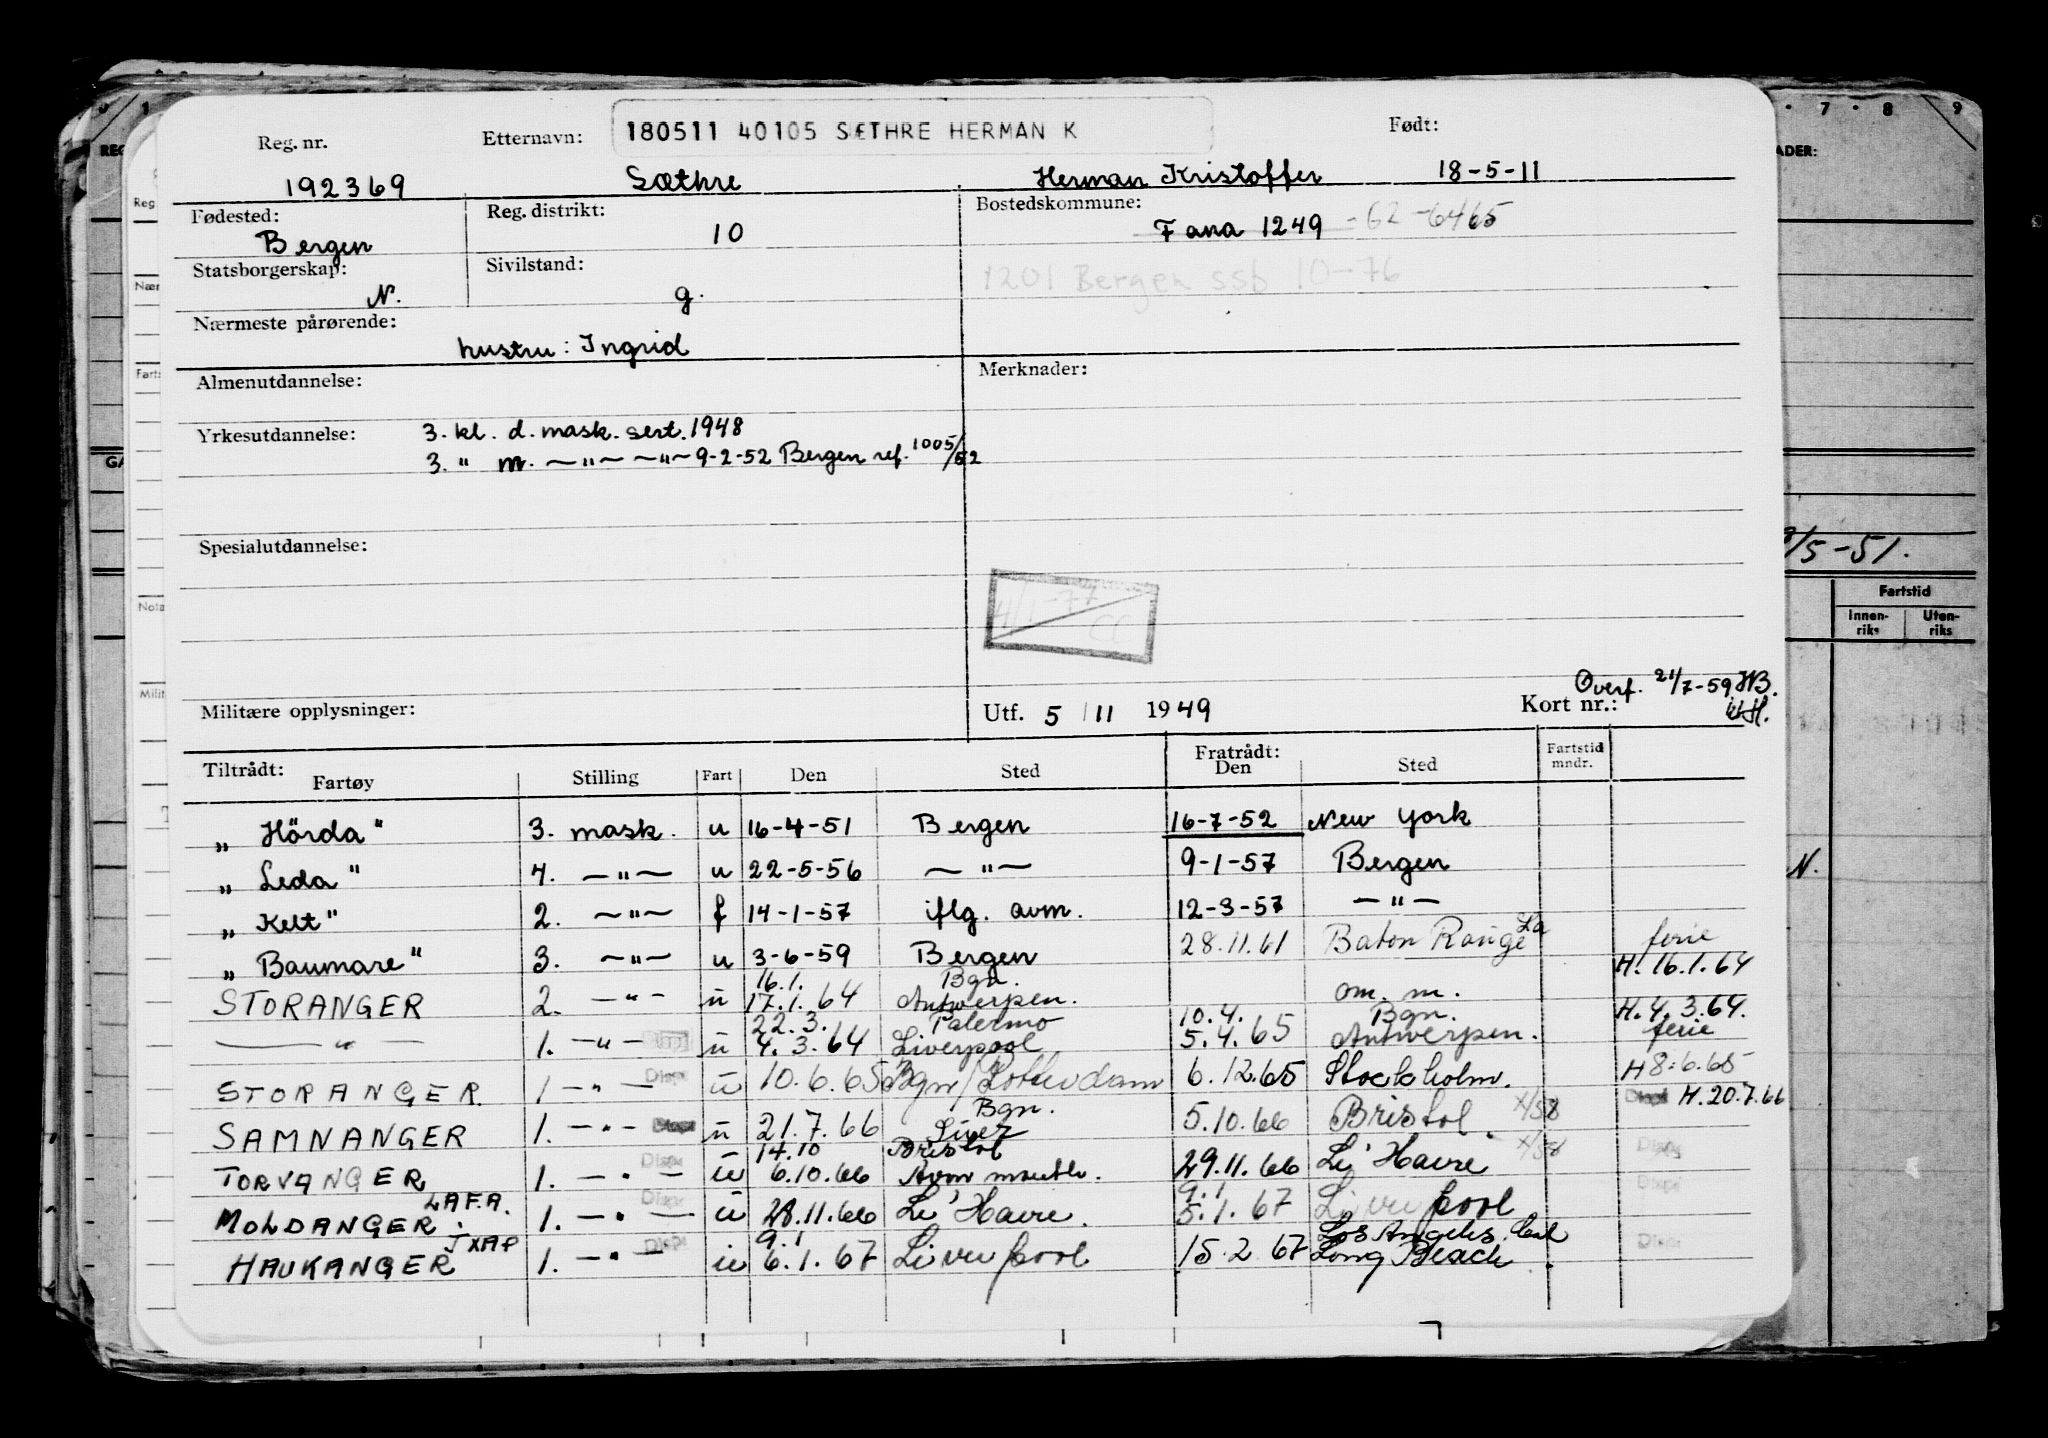 Reg. nr. Etternavn: 180511 40105 SÆTHRE HERMAN K Født:
192369 Sæthre Herman Kristoffer 18-5-11
Fødested: Reg. distrikt: Bostedskommune:
Bergen 10 Fana 1249 -62-6465
Statsborgerskap: Sivilstand:
N. g. 1201 Bergen ssb 10-76
Nærmeste pårørende:
hustru: Ingrid
Almenutdannelse: Merknader:
Yrkesutdannelse: 3. kl. d. mask. sert. 1948
3. " m. —"— —"— 9-2-52 Bergen ref. 1005/52
Spesialutdannelse:
4/1-77
CC
Overf. 21/7-59 HB.
Militære opplysninger: Utf. 5/11 1949 Kort nr.:
Tiltrådt: Fartøy Stilling Fart Den Sted Fratrådt: Den Sted Fartstid mndr.
„Hörda" 3. mask. u 16-4-51 Bergen 16-7-52 New York
„Leda" 4. —"— u 22-5-56 —"— 9-1-57 Bergen
„Kelt" 2. —"— f 14-1-57 iflg. avm. 12-3-57 —"—
„Baumare" 3. —"— u 3-6-59 Bergen 28.11.61 Baton Rouge La ferie
16.1. Bgn. H. 16.1.64
STORANGER 2. —"— u 17.1.64 Antwerpen. om. m.
22.3. Palermo 10.4. Bgn. H. 4.3.64.
—"— 1. —"— u 4.3.64 Liverpool 5.4.65 Antwerpen. ferie
STORANGER. 1 —"— Disp u 10.6.65 Bgn/Rotterdam 6.12.65 Stockholm. H 8.6.65
Bgn. x/58 Disp H. 20.7.66
SAMNANGER 1. —"— Disp u 21.7.66 Liver 5.10.66 Bristol.
14.10 Bristol x/58
TORVANGER 1. —"— Disp u 6.10.66 Avonmouth. 29.11.66 Le Havre Disp
LAFA. 9.1
MOLDANGER. 1. —"— Disp u 28.11.66 Le Havre. 5.1.67 Liverpool Disp
JXAP 9.1 Los Angeles. Cal
HAUKANGER 1. —"— Disp u 6.1.67 Liverpool 15.2.67 Long Beach. Disp
REG
Reg
Nær
Farts
GA
Nota
Milit
7 8 9
ADER:
/5-51.
Fartstid
Innen-riks Uten-riks
N.